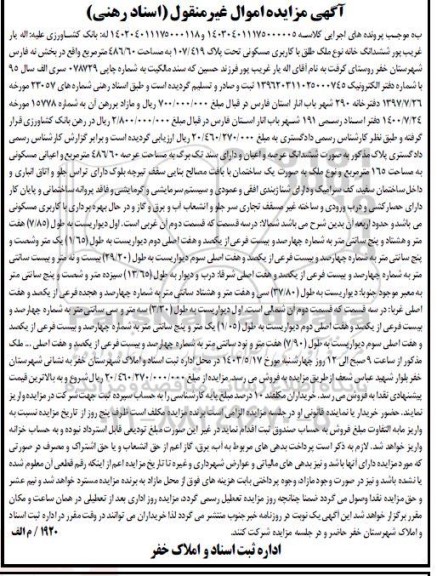 آگهی مزایده اموال غیرمنقول (اسناد رهنی)
به موجب پرونده های اجرایی کلاسه ۱۴۰۳۰۴۰۱۱۱۷۵۰۰۰۰۰۵ و ۱۴۰۲۰۴۰۱۱۱۷۵۰۰۰۱۱۸ له: بانک کشاورزی علیه: اله یار
غریب پور ششدانگ خانه نوع ملک طلق با کاربری مسکونی تحت پلاک ۱۰۷/۴۱۹ به مساحت ۴۸۶/۶۰ مترمربع واقع در بخش نه فارس
شهرستان خفر روستای گرفت به نام آقای اله یار غریب پور فرزند حسین که سند مالکیت به شماره چاپی ۰۷۸۷۲۹ سری الف سال ۹۵
با شماره دفتر الکترونیک ۱۳۹۶۲۰۳۱۱۰۲۵۰۰۰۷۴۵ ثبت و صادر و تسلیم گردیده است و طبق اسناد رهنی شماره های ۲۳۰۵۷ مورخه
۱۳۹۷/۷/۲۶ دفترخانه ۲۹۰ شهر باب انار استان فارس در قبال مبلغ ۷۰۰/۰۰۰/۰۰۰ ریال و مازاد بر رهن آن به شماره ۱۵۷۷۸ مورخه
۱۴۰۰/۷/۲۴ دفتر اسناد رسمی ۱۹۱ شهر باب انار استان فارس در قبال مبلغ ۲/۸۰۰/۰۰۰/۰۰۰ ریال در رهن بانک کشاورزی قرار
گرفته و طبق نظر کارشناس رسمی دادگستری به مبلغ ۲۰/۴۶۰/۲۷۰/۰۰۰ ریال ارزیابی گردیده است و برابر گزارش کارشناس رسمی
دادگستری پلاک مذکور به صورت ششدانگ عرصه و اعیان و دارای سند تک برگ به مساحت عرصه ۴۸۶/۶۰ مترمربع و اعیانی مسکونی
به مساحت ۱۶۵ مترمربع و نوع ملک به صورت یک ساختمان با بافت مصالح بنایی سقف تیرچه بلوک دارای تراس جلو و اتاق انباری و
داخل ساختمان سفید، کف سرامیک و دارای شناژبندی افقی و عمودی و سیستم سرمایشی و گرمایشی و فاقد پروانه ساختمانی و پایان کار
دارای حصارکشی و درب ورودی و ساخته غیر مسقف تجاری سر جلو و انشعاب آب و برق و گاز و در حال بهره برداری با کاربری مسکونی
می باشد و حدود اربعه آن بدین شرح می باشد شمالا: درسه قسمت که قسمت دوم آن غربی است. اول دیواریست به طول (۷/۸۵) هفت
متر و هشتاد و پنج سانتی متر به شماره چهارصد و بیست فرعی از یکصد و هفت اصلی دوم دیواریست به طول (۱/۶۵) یک متر و شصت و
پنج سانتی متر به شماره چهارصد و بیست فرعی از یکصد و هفت اصلی سوم دیواریست به طول (۲۹،۲۰) بیست و نه متر و بیست سانتی
متر به شماره چهارصد و بیست فرعی از یکصد و هفت اصلی شرقا: درب و دیوار به طول (۱۳/۶۵) سیزده متر و شصت و پنج سانتی متر
به معبر موجود جنوبا: دیواریست به طول (۳۷/۸۰) سی و هفت متر و هشتاد سانتی متر به شماره چهارصد و هجده فرعی از یکصد و هفت
اصلی غربا: در سه قسمت که قسمت دوم آن شمالی است. اول دیواریست به طول (۳/۳۰) سه متر و سی سانتی متر به شماره چهارصد و
بیست فرعی از یکصد و هفت اصلی دوم دیواریست به طول (۱/۰۵) یک متر و پنج سانتی متر به شماره چهارصد و بیست فرعی از یکصد
و هفت اصلی سوم دیواریست به طول (۷/۹۰) هفت متر و نود سانتی متر به شماره چهارصد و بیست فرعی از یکصد و هفت اصلی... ملک
مذکور از ساعت ۹ صبح الی ۱۲ روز چهارشنبه مورخ ۱۴۰۳/۵/۱۷ در محل اداره ثبت اسناد و املاک شهرستان خفر به نشانی شهرستان
خفر بلوار شهید عباس شاهد از طریق مزایده به فروش می رسد. مزایده از مبلغ ۲۰/۴۶۰/۲۷۰/۰۰۰ ریال شروع و به بالاترین قیمت
پیشنهادی نقدا به فروش می رسد. خریداران مکلفند ۱۰ درصد مبلغ پایه کارشناسی را به حساب سپرده ثبت جهت شرکت در مزایده واریز
نمایند. حضور خریدار یا نماینده قانونی او در جلسه مزایده الزامی است. برنده مزایده مکلف است ظرف پنج روز از تاریخ مزایده نسبت به
واریز مابه التفاوت مبلغ فروش به حساب صندوق ثبت اقدام نماید در غیر این صورت مبلغ تودیعی قابل استرداد نبوده و به حساب خزانه
واریز خواهد شد. لازم به ذکر است پرداخت بدهی های مربوط به آب، برق، گاز اعم از حق انشعاب و یا حق اشتراک و مصرف در صورتی
که مورد مزایده دارای آنها باشد و نیز بدهی های مالیاتی و عوارض شهرداری و غیره تا تاریخ مزایده اعم از اینکه رقم قطعی آن معلوم شده
یا نشده باشد و نیز در صورت وجود مازاد، وجوه پرداختی بابت هزینه های فوق از محل مازاد به برنده مزایده مسترد خواهد شد و نیم عشر
و حق مزایده نقدا وصول می گردد ضمنا چنانچه روز مزایده تعطیل رسمی گردد، مزایده روز اداری بعد از تعطیلی در همان ساعت و مکان
مقرر برگزار خواهد شد این آگهی یک نوبت در روزنامه خبر جنوب منتشر می گردد لذا خریداران می توانند در وقت مقرر در اداره ثبت اسناد
و املاک شهرستان خفر حاضر و در جلسه مزایده شرکت کنند.
۱۹۲۰/م الف
اداره ثبت اسناد و املاک خفر